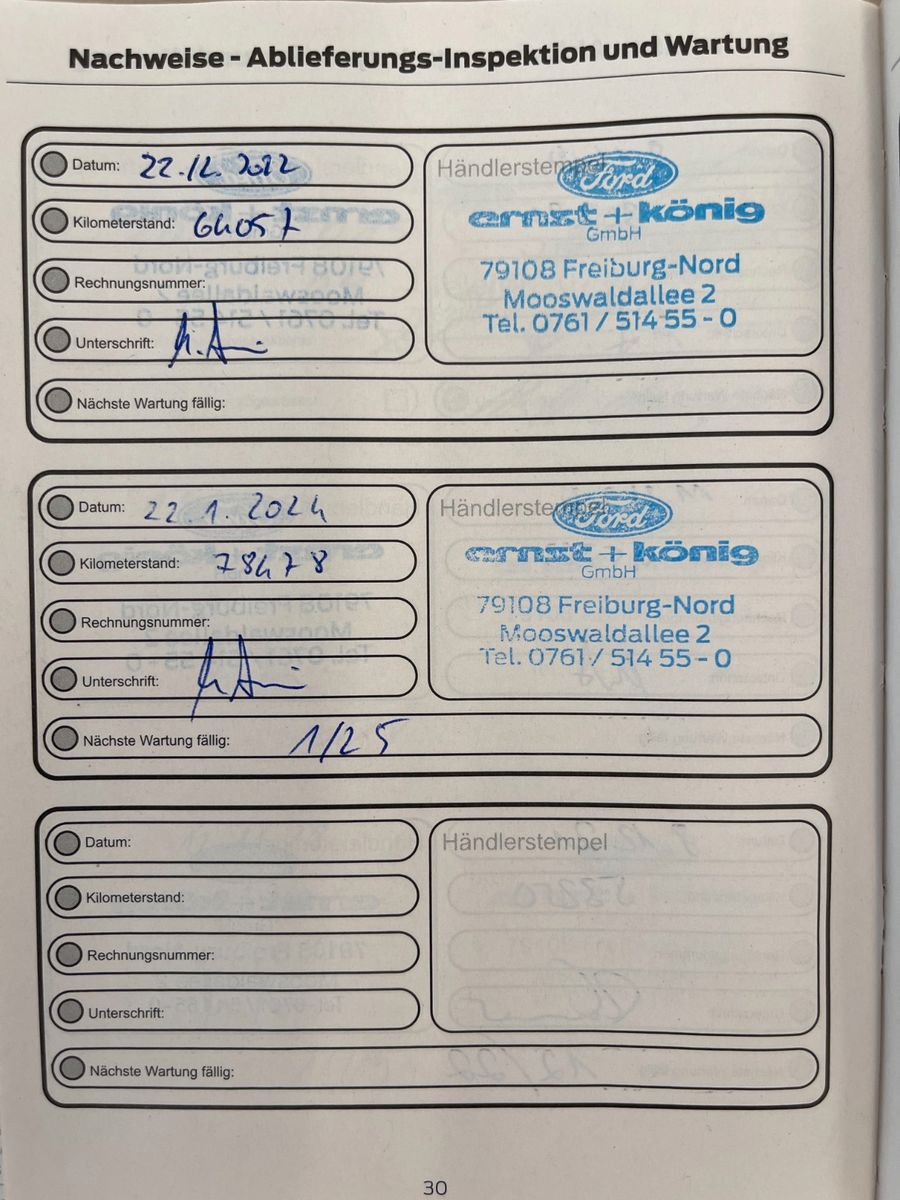 Nachweise - Ablieferungs-Inspektion und Wartung
Datum: 22.12.2022
Kilometerstand: 64057
Rechnungsnummer:
Unterschrift:
Nächste Wartung fällig:
Händlerstempel
Ford
ernst + könig
GmbH
79108 Freiburg-Nord
Mooswaldallee 2
Tel. 0761 / 514 55 - 0
Datum: 22.1.2024
Kilometerstand: 78478
Rechnungsnummer:
Unterschrift:
Nächste Wartung fällig: 1/25
Händlerstempel
Ford
ernst + könig
GmbH
79108 Freiburg-Nord
Mooswaldallee 2
Tel. 0761 / 514 55 - 0
Datum:
Kilometerstand:
Rechnungsnummer:
Unterschrift:
Nächste Wartung fällig:
Händlerstempel
30